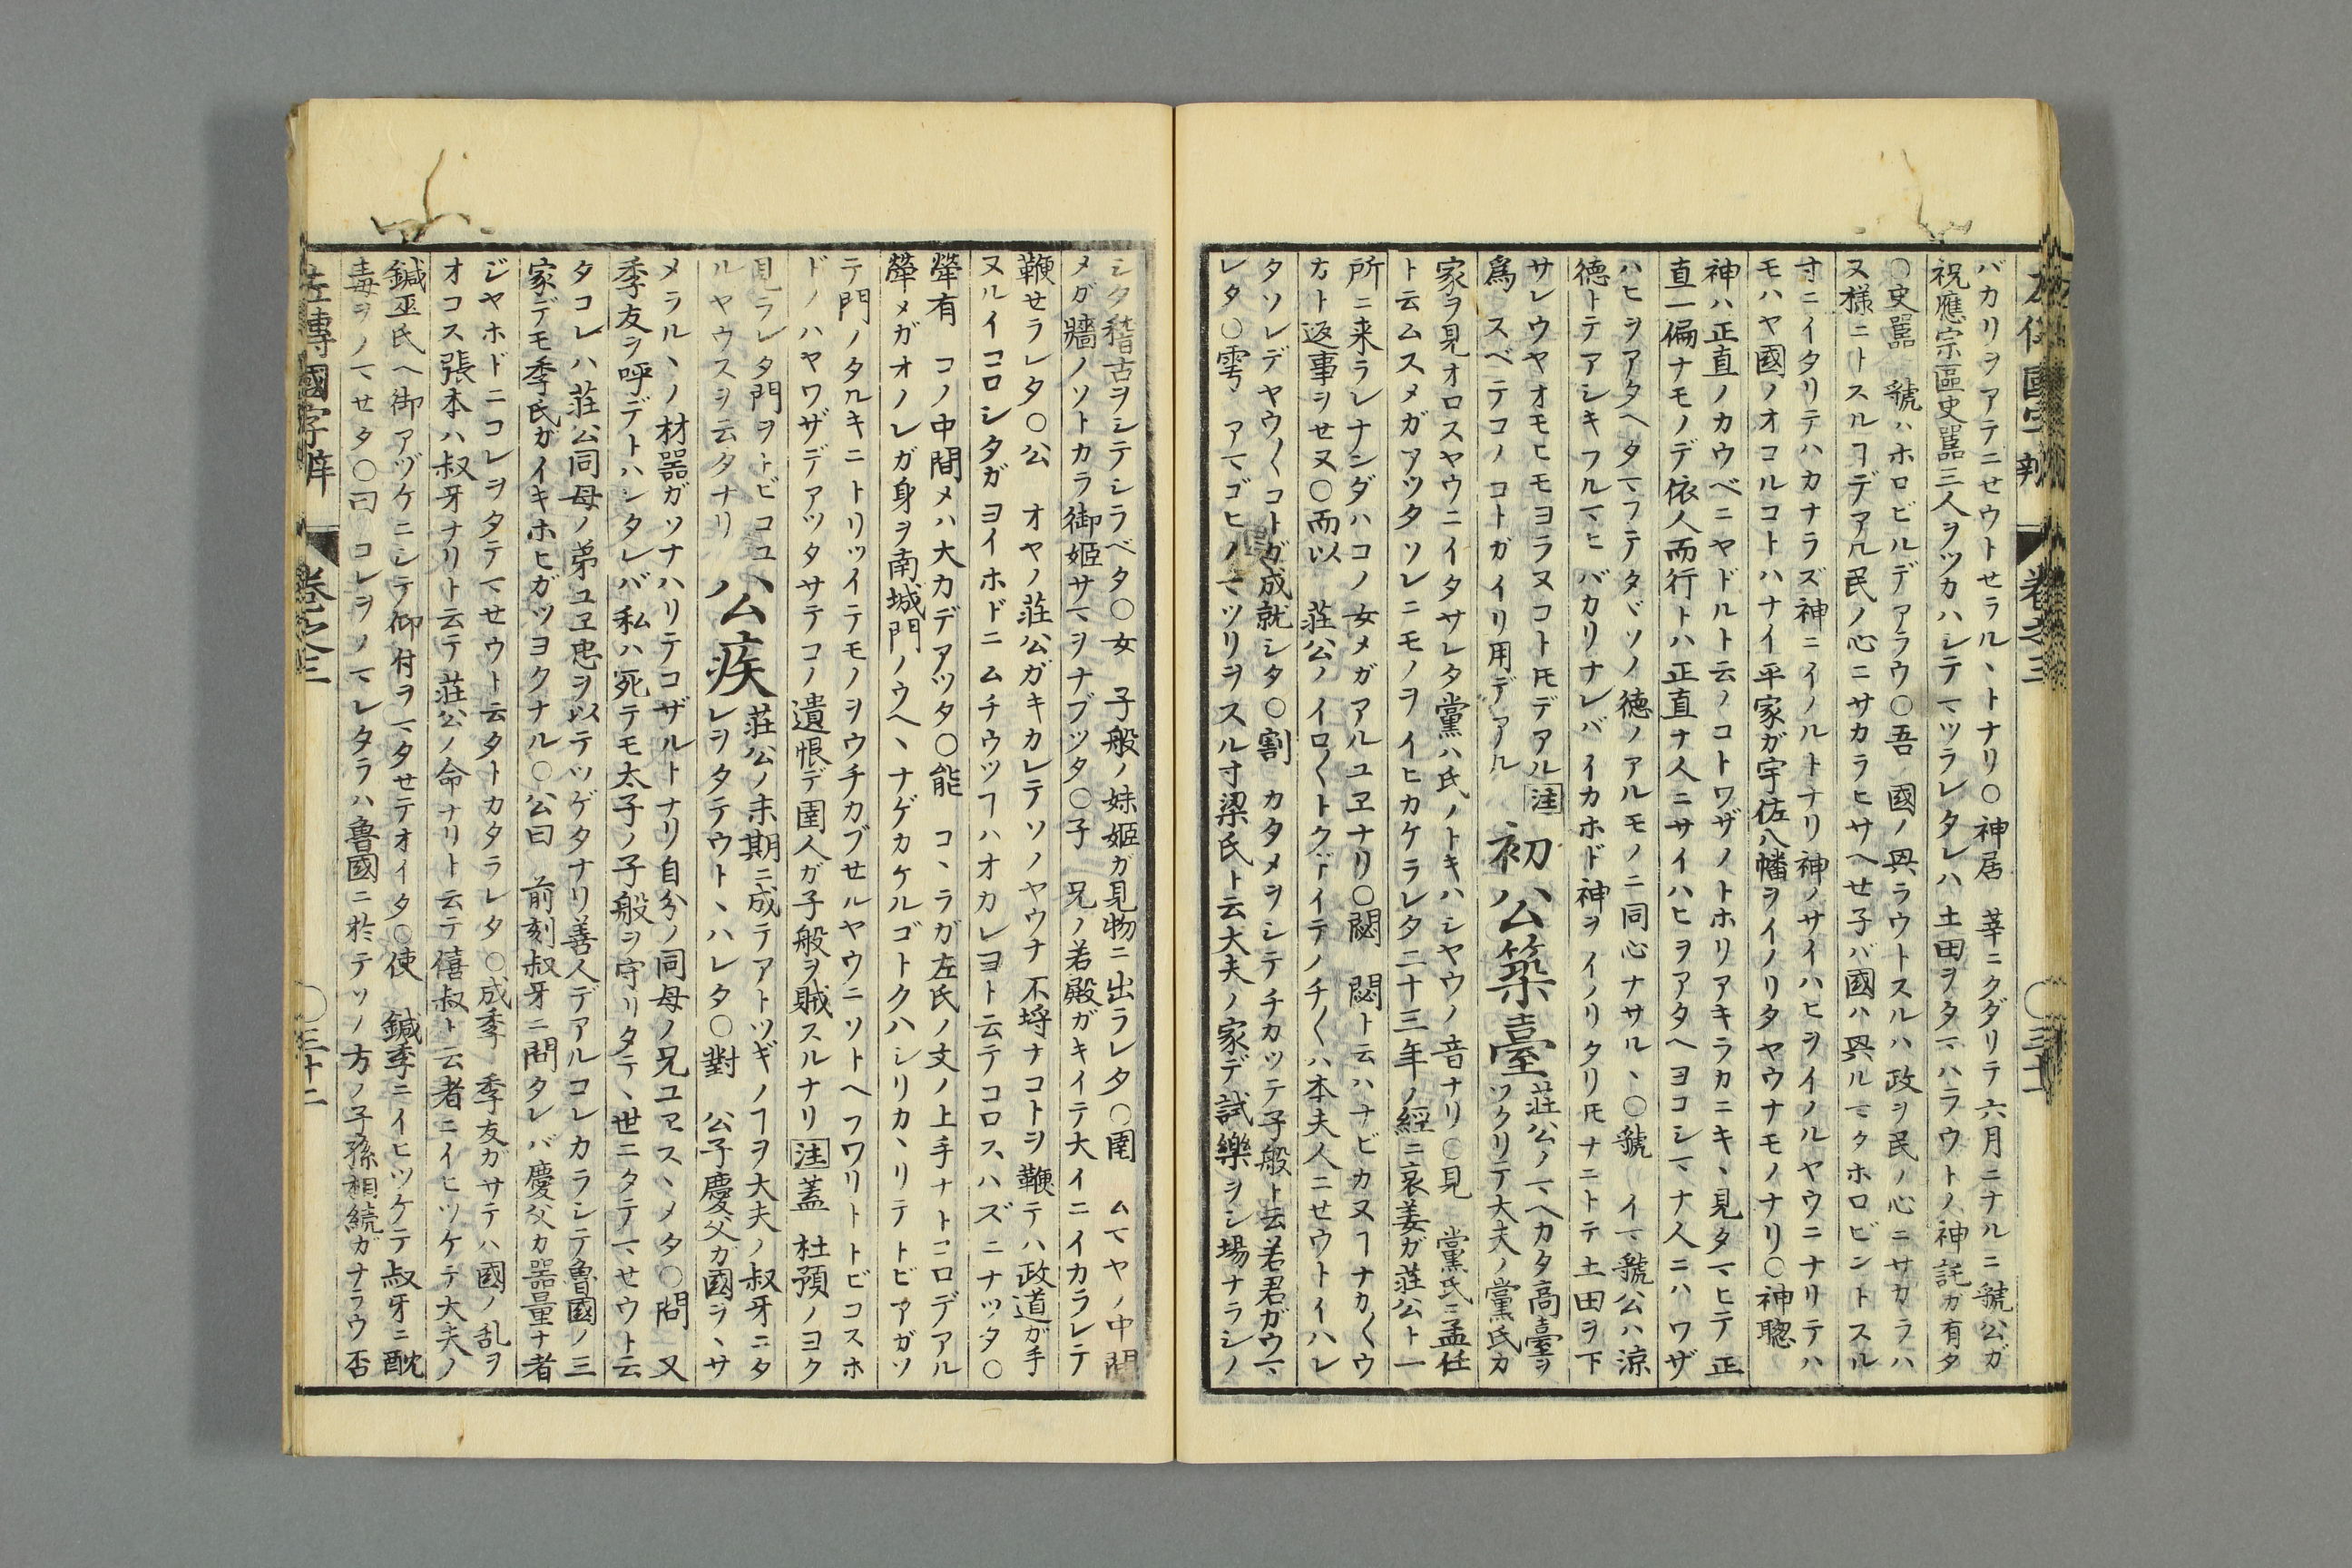 左傳國字辨 卷之三 〇三十一
バカリヲアテニセウトせラルヽトナリ〇神居 莘ニクダリテ六月ニナルニ虢公ガ
祝應宗區史嚚三人ヲツカハシテマツラレタレハ土田ヲタマハラウトノ神託ガ有タ
〇史嚚 虢ハホロビルデアラウ〇吾 國ノ興ラウトスルハ政ヲ民ノ心ニサカラハ
ヌ様ニトスルヿデアル民ノ心ニサカラヒサヘせ子バ國ハ興ルマタホロビントスル
寸ニイタリテハカナラズ神ニイノルトナリ神ノサイハヒヲイノルヤウニナリテハ
モハヤ國ノオコルコトハナイ平家ガ宇佐八幡ヲイノリタヤウナモノナリ〇神聰
神ハ正直ノカウベニヤドルト云ノコトワザノトホリアキラカニキヽ見タマヒテ正
直一偏ナモノデ依人而行トハ正直ナ人ニサイハヒヲアタヘヨコシマナ人ニハワザ
ハヒヲアタヘタマフテタヾソノ徳ノアルモノニ同心ナサルヽ〇虢 イマ虢公ハ涼
徳トテアシキフルマヒバカリナレバイカホド神ヲイノリタリ𪜈ナニトテ土田ヲ下
サレウヤオモヒモヨラヌコト𪜈デアル 注
為 スベテコノコトガイリ用デアル
初公築臺
荘公ノマヘカタ高臺ヲ
ツクリテ大夫ノ黨氏カ
家ヲ見オロスヤウニイタサレタ黨ハ氏ノトキハシヤウノ音ナリ〇見 黨氏ニ孟任
ト云ムスメガアツタソレニモノヲイヒカケラレタ二十三年ノ經ニ哀姜ガ荘公ト一
所ニ来ラレナンダハコノ女メガアルユヱナリ〇閟 閟ト云ハナビカヌヿナカ〱ウ
ナト返事ヲせヌ〇而以 荘公ノイロ〱トクドイテノチ〱ハ本夫人ニせウトイハレ
タソレデヤウ〱コトガ成就シタ〇割 カタメヲシテチカツテ子般ト云若君ガウマ
レタ〇雩 アマゴヒノマツリヲスル寸梁氏ト云大夫ノ家デ試樂ヲシ場ナラシノ
シタ稽古ヲシテシラベタ〇女 子般ノ妹姫ガ見物ニ出ラレタ〇圉 ムマヤノ中間
メガ牆ノソトカラ御姫サマヲナブツタ〇子 兄ノ若殿ガキイテ大イニイカラレテ
鞭せラレタ〇公 オヤノ荘公ガキカレテソノヤウナ不埒ナコトヲ鞭テハ政道ガ手
ヌルイコロシタガヨイホドニムチウツヿハオカレヨト云テコロスハズニナツタ〇
犖有 コノ中間メハ大カデアツタ〇能 コヽラガ左氏ノ文ノ上手ナトコロデアル
犖メガオノレガ身ヲ南城門ノウヘヽナゲカケルゴトクハシリカヽリテトビアガソ
テ門ノタルキニトリツイテモノヲウチカブせルヤウニソトヘフワリトトビコスホ
ドノハヤワザデアツタサテコノ遺恨デ圉人ガ子般ヲ賊スルナリ 注 蓋 杜預ノヨク
見ラレタ門ヲトビコユ
ルヤウスヲ云タナリ
公疾
荘公ノ末期ニ成テアトツギノヿヲ大夫ノ叔牙ニタ
レヲタテウトヽハレタ〇對 公子慶父ガ國ヲヽサ
メラルヽノ材器ガソナハリテコザルトナリ自分ノ同母ノ兄ユヱスヽメタ〇問 又
季友ヲ呼デトハシタレバ私ハ死テモ太子ノ子般ヲ守リタテヽ世ニタテマせウト云
タコレハ荘公同母ノ弟ユヱ忠ヲ以テツゲタナリ善人デアルコレカラシテ魯國ノ三
家デモ季氏ガイキホヒガツヨクナル〇公曰 前刻叔牙ニ問タレバ慶父カ器量ナ者
ジヤホドニコレヲタテマせウト云タトカタラレタ〇成季 季友ガサテハ國ノ乱ヲ
オコス張本ハ叔牙ナリト云テ荘公ノ命ナリト云テ僖叔ト云者ニイヒツケテ大夫ノ
鍼巫氏ヘ御アヅケニシテ仰付ヲマタせテオイタ〇使 鍼季ニイヒツケテ叔牙ニ酖
毒ヲノマせタ〇曰 コレヲノマレタラハ魯國ニ於テソノ方ノ子孫相続ガナラウ否
左傳國字辨 卷之三 〇三十二